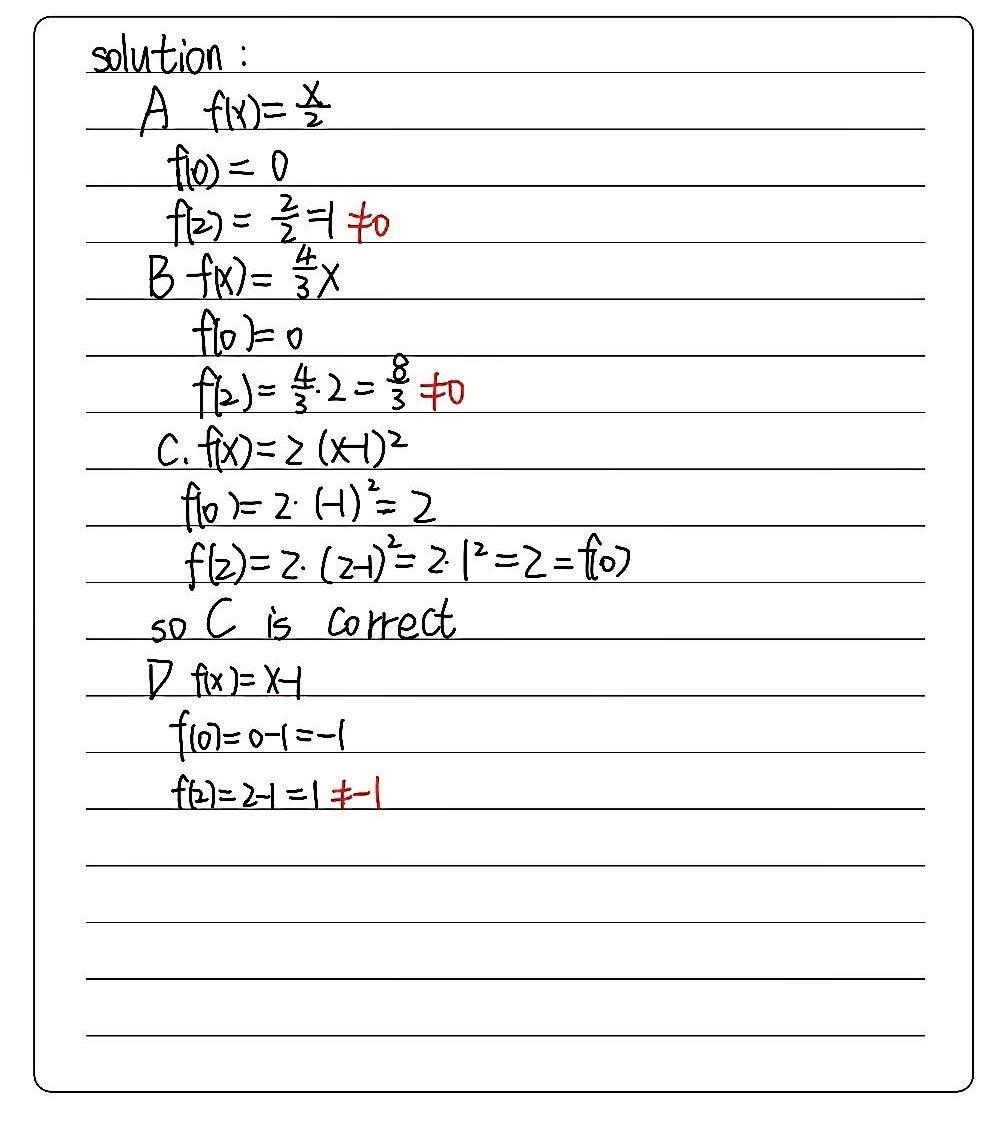 solution :
A f(x)= x/2
f(0) = 0
f(2) = 2/2 =1 ≠0
B f(x)= 4/3 x
f(0)= 0
f(2)= 4/3 · 2 = 8/3 ≠0
C. f(x)= 2 (x-1)²
f(0)= 2· (-1)² = 2
f(2)= 2· (2-1)² = 2·1² = 2 = f(0)
so C is correct
D f(x)= x-1
f(0)= 0-1 = -1
f(2)= 2-1 = 1 ≠-1